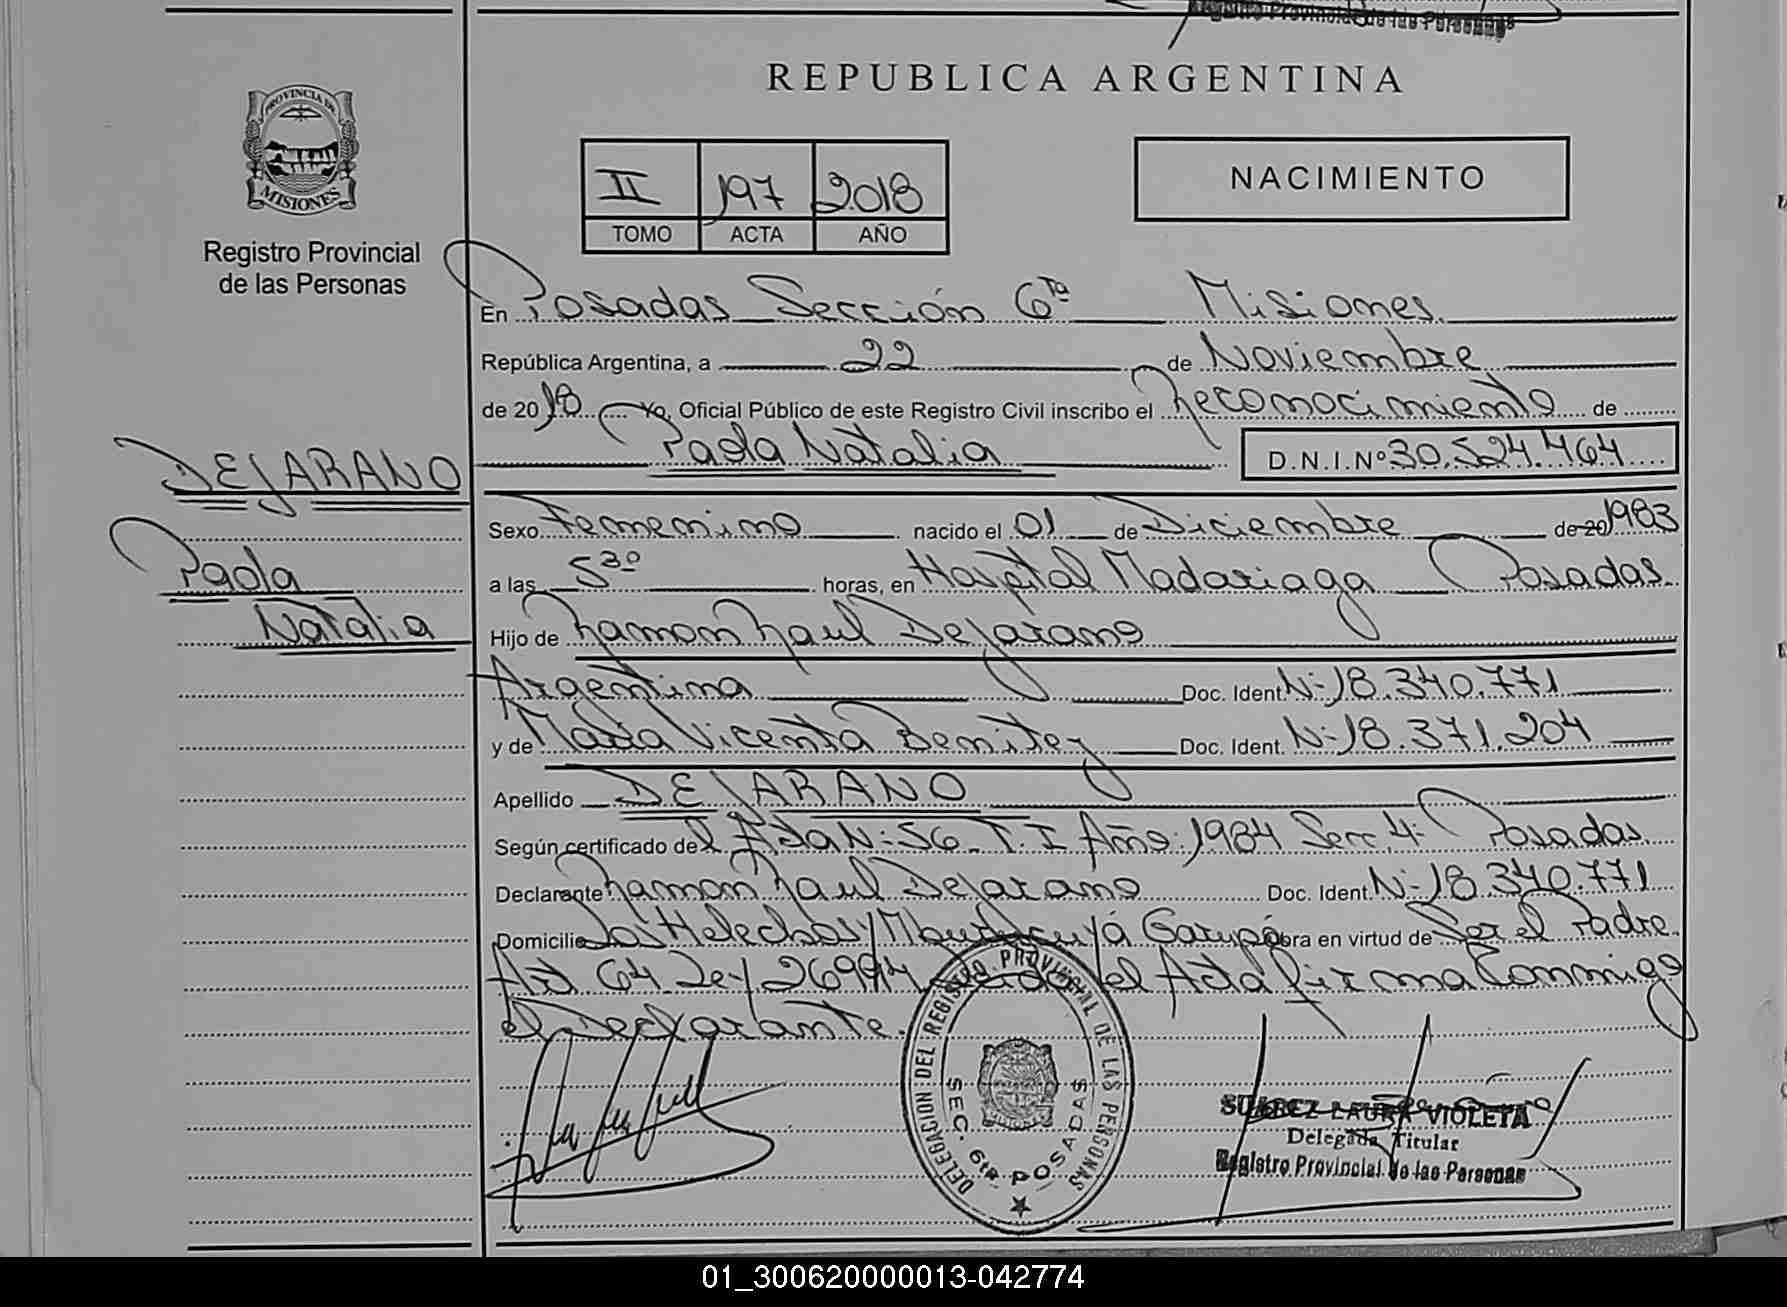 Registro Provincial de las Personas
REPUBLICA ARGENTINA
PROVINCIA DE
MISIONES
Registro Provincial
de las Personas
II 197 2018
TOMO ACTA AÑO
NACIMIENTO
En Posadas Sección 6ta Misiones
República Argentina, a 22 de Noviembre
de 2018 Yo, Oficial Público de este Registro Civil inscribo el Reconocimiento de
Paola Natalia D.N.I.Nº 30.524.464
DEJARANO
Paola
Natalia
Sexo Femenino nacido el 01 de Diciembre de 20 1983
a las 5 30 horas, en Hospital Madariaga Posadas
Hijo de Ramon Raul Dejarano
Argentina Doc. Ident. Nº 18.340.771
y de Maria Vicenta Benitez Doc. Ident. Nº 18.371.204
Apellido DEJARANO
Según certificado del Acta Nº 56 T. I Año 1984 Secc. 4º Posadas
Declarante Ramon Raul Dejarano Doc. Ident. Nº 18.340.771
Domicilio Los Helechos / Mburucuyá Garupá obra en virtud de Ser el Padre
Art 64 Ley 26994 el Acta firma Conmigo
el Declarante.
DELEGACION DEL REGISTRO PROVINCIAL DE LAS PERSONAS
SEC. 6ta POSADAS
SUAREZ LAURA VIOLETA
Delegada Titular
Registro Provincial de las Personas
01_300620000013-042774